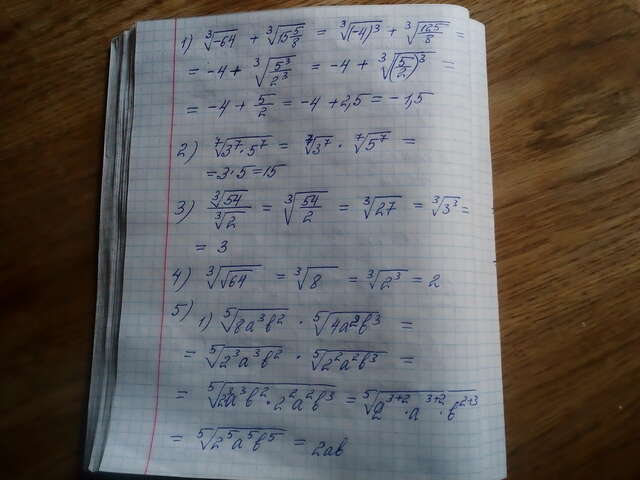 1) ∛-64 + ∛15 5/8 = ∛(-4)³ + ∛125/8 =
= -4 + ∛5³/2³ = -4 + ∛(5/2)³ =
= -4 + 5/2 = -4 + 2,5 = -1,5
2) ⁷√3⁷·5⁷ = ⁷√3⁷ · ⁷√5⁷ =
= 3·5 = 15
3) ∛54/∛2 = ∛54/2 = ∛27 = ∛3³ =
= 3
4) ∛√64 = ∛8 = ∛2³ = 2
5) 1) ⁵√8a³b² · ⁵√4a²b³ =
= ⁵√2³a³b² · ⁵√2²a²b³ =
= ⁵√2³a³b²·2²a²b³ = ⁵√2³⁺²·a³⁺²·b²⁺³
= ⁵√2⁵a⁵b⁵ = 2ab